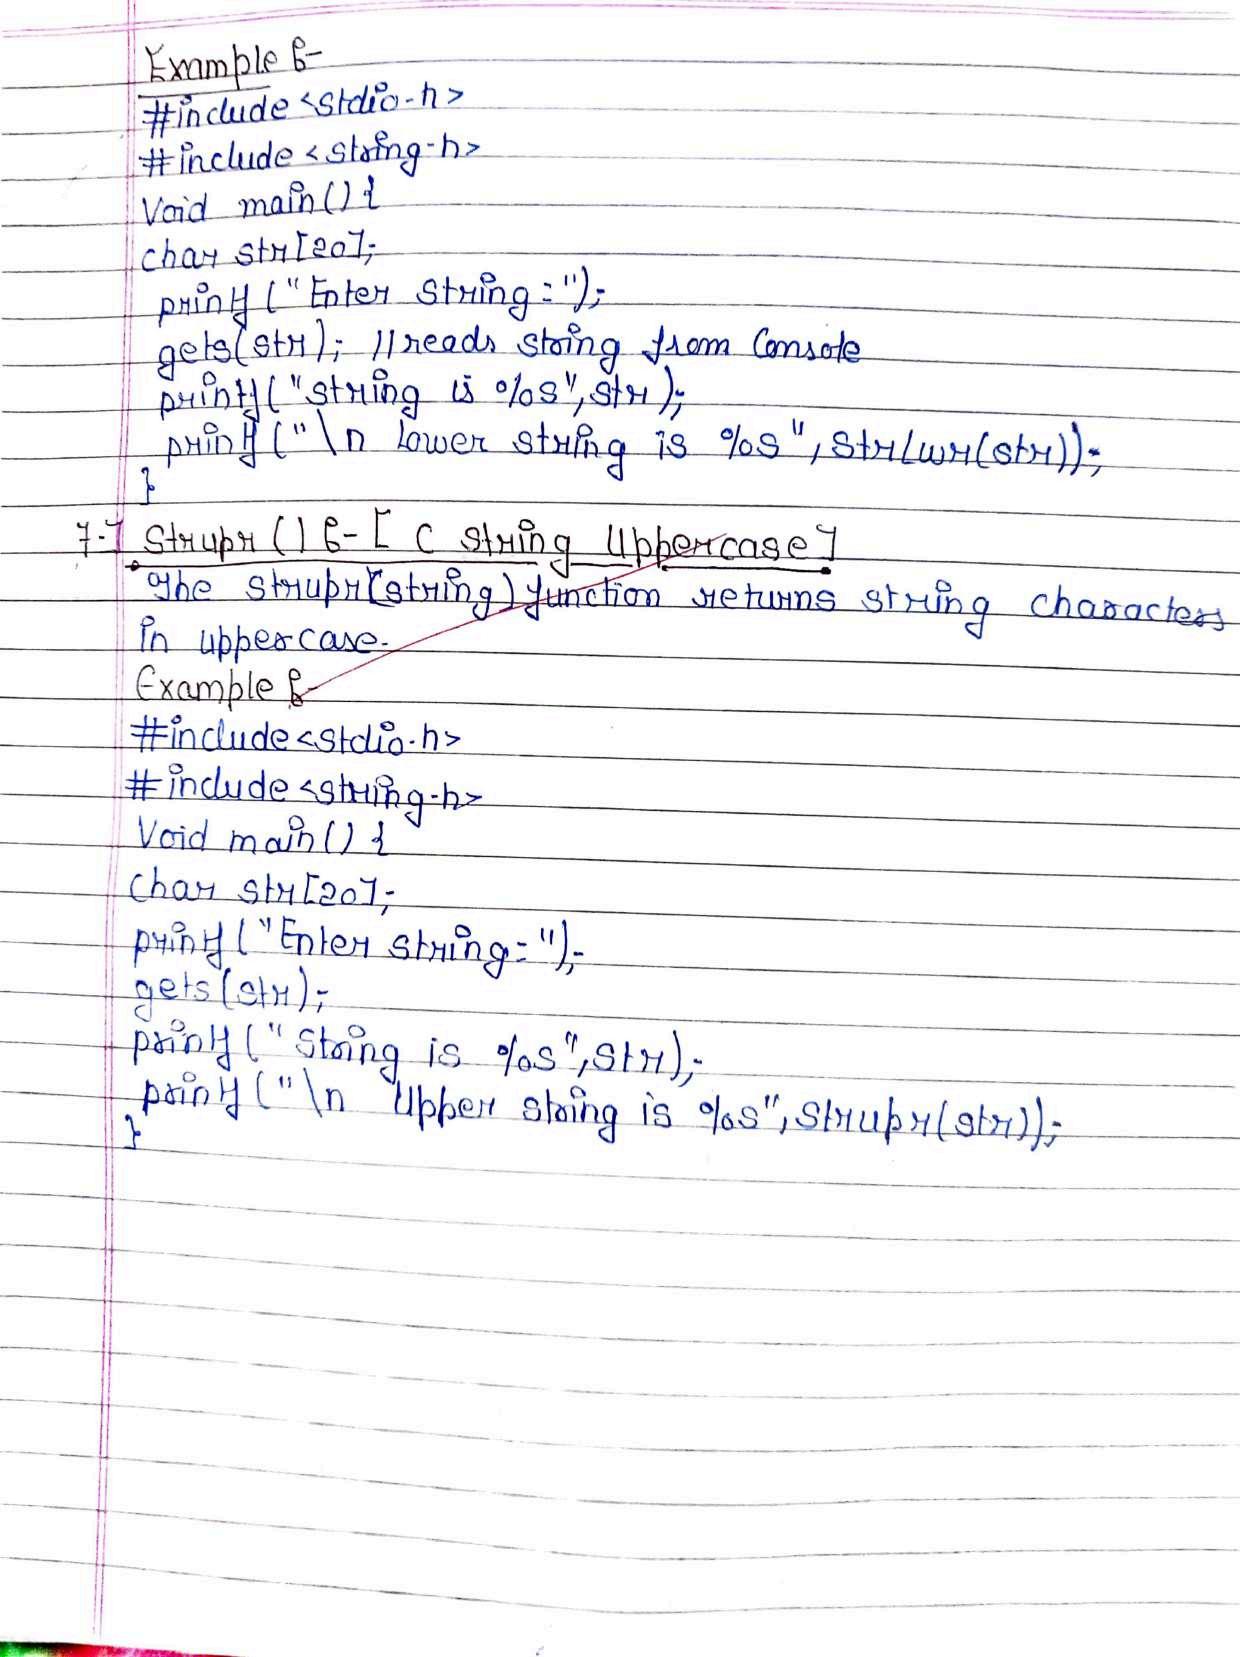 Example :-
#include <stdio.h>
#include <string.h>
Void main() {
char str[20];
printf ("Enter String =");
gets(str); //reads string from Console
printf("string is %s", str);
printf ("\n Lower string is %s", strlwr(str));
}
7.] Strupr () :- [ C string Uppercase]
The strupr(string) function returns string characters
in uppercase.
Example :-
#include <stdio.h>
#include <string.h>
Void main() {
Char str[20];
printf ("Enter string=");
gets(str);
printf (" String is %s", str);
printf ("\n Upper string is %s", Strupr(str));
}